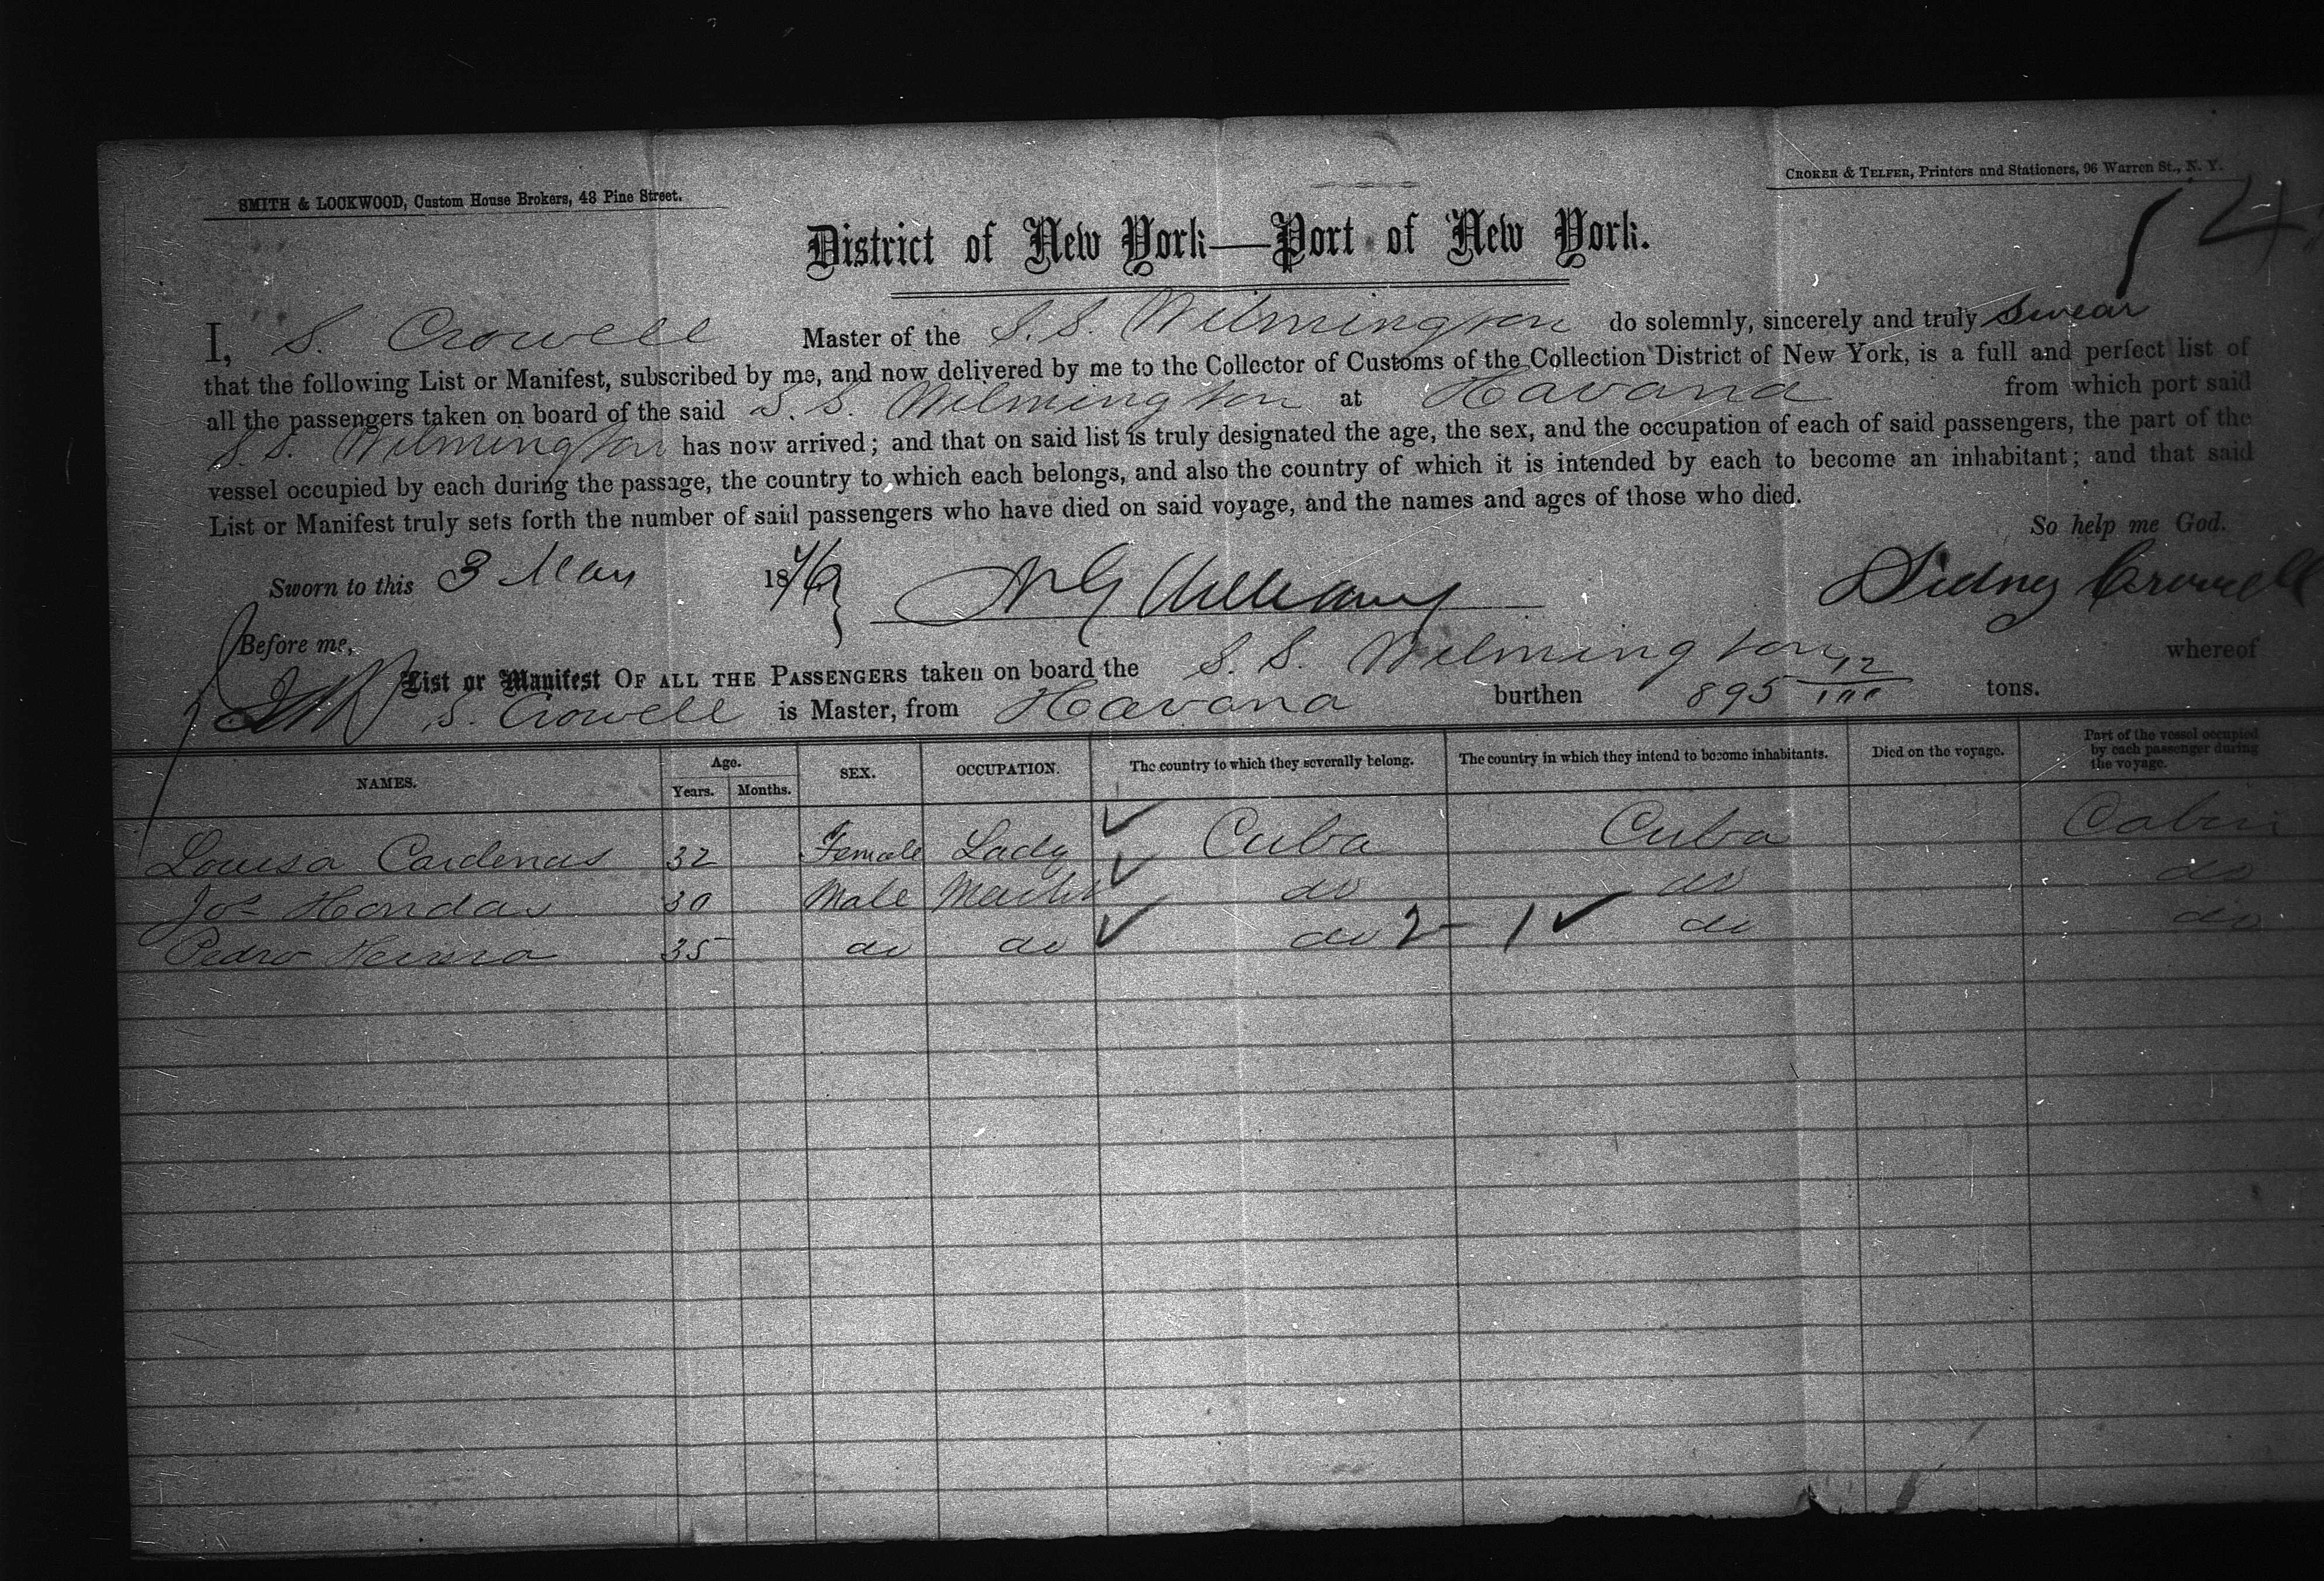 SMITH & LOCKWOOD, Custom House Brokers, 48 Pine Street.
CROKER & TELFER, Printers and Stationers, 96 Warren St., N. Y.
District of New York—Port of New York.
I, S. Crowell Master of the S.S. Wilmington do solemnly, sincerely and truly swear
that the following List or Manifest, subscribed by me, and now delivered by me to the Collector of Customs of the Collection District of New York, is a full and perfect list of
all the passengers taken on board of the said S. S. Wilmington at Havana from which port said
S. S. Wilmington has now arrived; and that on said list is truly designated the age, the sex, and the occupation of each of said passengers, the part of the
vessel occupied by each during the passage, the country to which each belongs, and also the country of which it is intended by each to become an inhabitant; and that said
List or Manifest truly sets forth the number of said passengers who have died on said voyage, and the names and ages of those who died.
So help me God.
Sworn to this 3 May 1876 Sidney Crowell
Before me,
List or Manifest OF ALL THE PASSENGERS taken on board the S. S. Wilmington whereof
S. Crowell is Master, from Havana burthen 895 12/100 tons.
NAMES. Age. Years. Months. SEX. OCCUPATION. The country to which they severally belong. The country in which they intend to become inhabitants. Died on the voyage. Part of the vessel occupied by each passenger during the voyage.
Louisa Cardenas 32 Female Lady Cuba Cuba Cabin
Jos Hondas 30 Male do do do
Pedro Herrera 35 do do do 2 1 do do